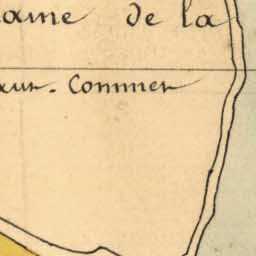 ame de la
aut. Commer